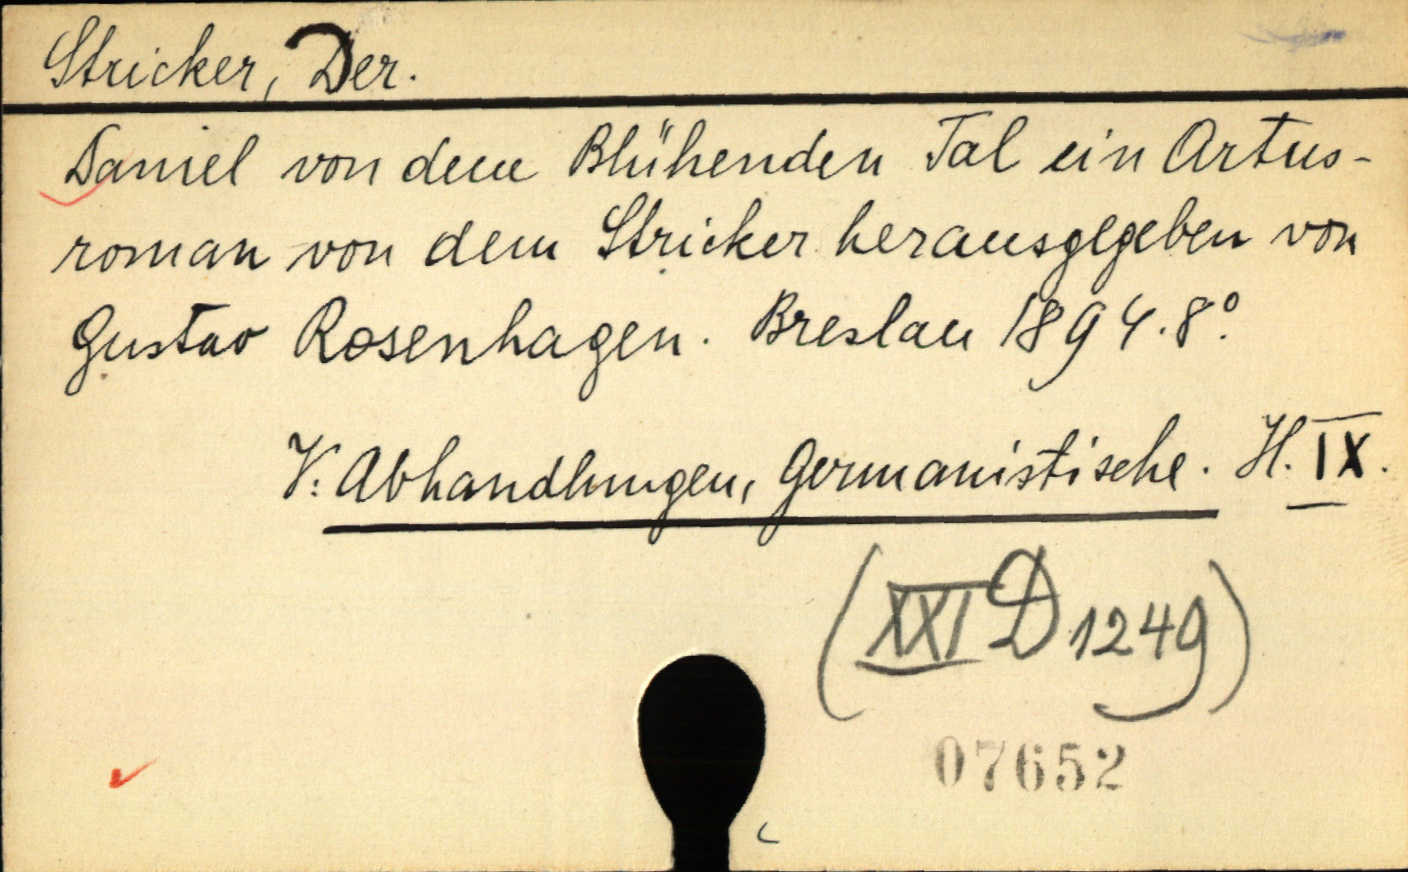 Stricker, Der.
Daniel von dem Blühenden Tal ein Artus-
roman von dem Stricker herausgegeben von
Gustav Rosenhagen. Breslau 1894. 8º.
V: Abhandlungen, Germanistische. H. IX.
(XXI D 1249)
07652